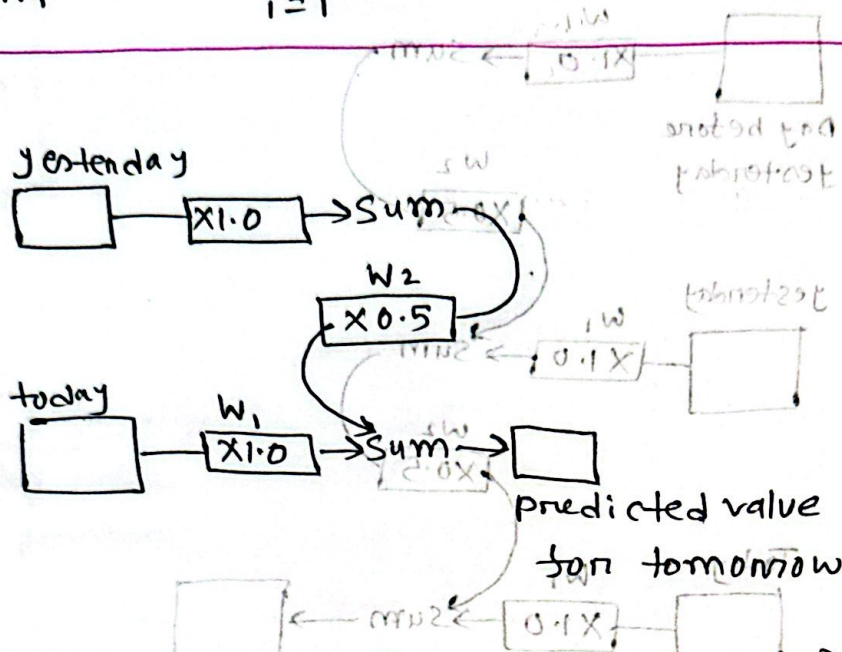 i=1
yesterday
X1.0 → Sum
W2
X0.5
today
W1
X1.0 → Sum →
predicted value
for tomorrow